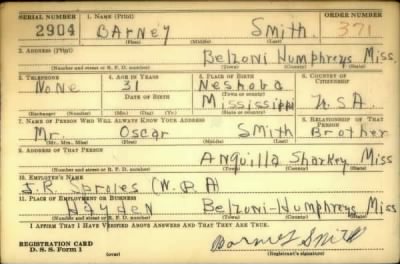 SERIAL NUMBER 1. NAME (Print) ORDER NUMBER
2904 BARNEY Smith. 371
(First) (Middle) (Last)
2. ADDRESS (Print)
Belzoni Humphreys Miss.
(Number and street or R. F. D. number) (Town) (County) (State)
3. TELEPHONE 4. AGE IN YEARS 5. PLACE OF BIRTH 6. COUNTRY OF CITIZENSHIP
None 31 Neshoba
DATE OF BIRTH (Town or county)
Mississippi U.S.A.
(Exchange) (Number) (Mo.) (Day) (Yr.) (State or country)
7. NAME OF PERSON WHO WILL ALWAYS KNOW YOUR ADDRESS 8. RELATIONSHIP OF THAT PERSON
Mr. Oscar Smith Brother
(Mr., Mrs., Miss) (First) (Middle) (Last)
9. ADDRESS OF THAT PERSON
Anguilla Sharkey Miss
(Number and street or R. F. D. number) (Town) (County) (State)
10. EMPLOYER'S NAME
J.R. Sproles (W.P.A)
11. PLACE OF EMPLOYMENT OR BUSINESS
Hayden Belzoni-Humphreys Miss
(Number and street or R. F. D. number) (Town) (County) (State)
I AFFIRM THAT I HAVE VERIFIED ABOVE ANSWERS AND THAT THEY ARE TRUE.
REGISTRATION CARD
D. S. S. Form 1 (over) Barney Smith
(Registrant's signature)